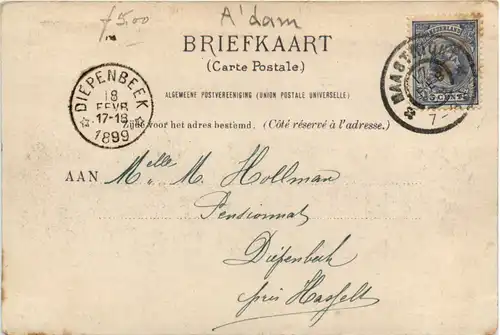 f 5.00
A'dam
BRIEFKAART
(Carte Postale.)
ALGEMEENE POSTVEREENIGING (UNION POSTALE UNIVERSELLE)
Zijde voor het adres bestemd. (Côté réservé à l'adresse.)
DIEPENBEEK
18
FEVR
17-18
1899
MAASTRICHT
7-8
NEDERLAND
5 CENT
AAN Melle M. Hollman
Pensionnat
Diepenbeek
près Hasselt